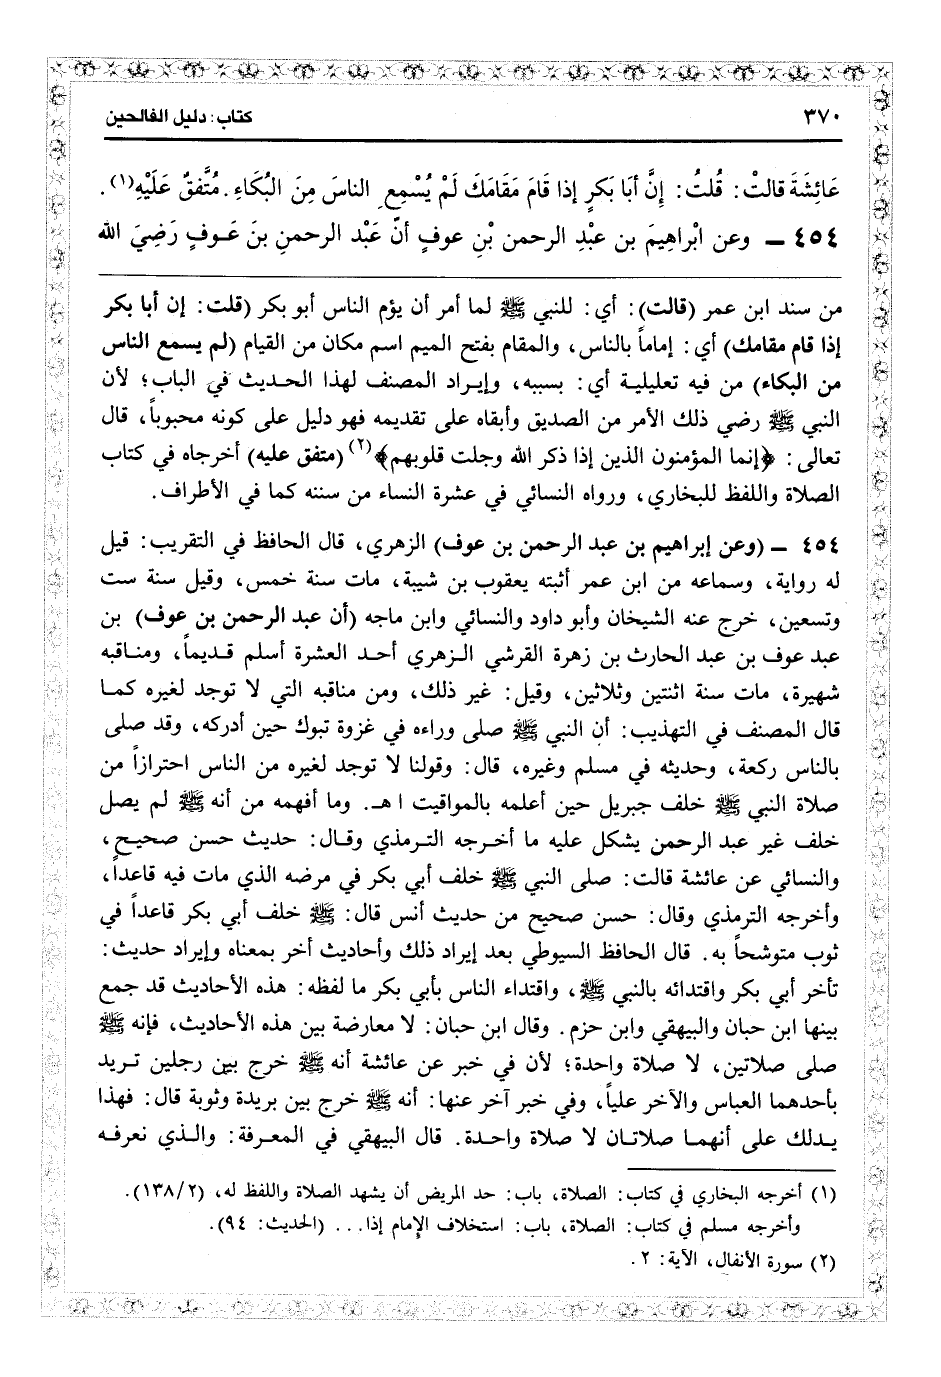 ٣٧٠
كتاب: دليل الفالحين
عَائِشَةَ قالتْ: قُلتُ: إِنَّ أبَا بَكرٍ إذا قَامَ مَقَامَكَ لَمْ يُسْمِعِ الناسَ مِنَ البُكَاءِ. مُتَّفقٌ عَلَيْهِ(١).
٤٥٤ ــ وعن ابْراهِيمَ بن عبْدِ الرحمن بْنِ عوفٍ أنّ عَبْد الرحمنِ بنَ عَـوفٍ رَضِيَ الله
من سند ابن عمر (قالت): أي: للنبي ﷺ لما أمر أن يؤم الناس أبو بكر (قلت: إن أبا بكر
إذا قام مقامك) أي: إماماً بالناس، والمقام بفتح الميم اسم مكان من القيام (لم يسمع الناس
من البكاء) من فيه تعليلية أي: بسببه، وإيراد المصنف لهذا الحديث في الباب؛ لأن
النبي ﷺ رضي ذلك الأمر من الصديق وأبقاه على تقديمه فهو دليل على كونه محبوباً، قال
تعالى: ﴿إنما المؤمنون الذين إذا ذكر الله وجلت قلوبهم﴾(٢) (متفق عليه) أخرجاه في كتاب
الصلاة واللفظ للبخاري، ورواه النسائي في عشرة النساء من سننه كما في الأطراف.
٤٥٤ ــ (وعن إبراهيم بن عبد الرحمن بن عوف) الزهري، قال الحافظ في التقريب: قيل
له رواية، وسماعه من ابن عمر أثبته يعقوب بن شيبة، مات سنة خمس، وقيل سنة ست
وتسعين، خرج عنه الشيخان وأبو داود والنسائي وابن ماجه (أن عبد الرحمن بن عوف) بن
عبد عوف بن عبد الحارث بن زهرة القرشي الزهري أحد العشرة أسلم قديماً، ومناقبه
شهيرة، مات سنة اثنتين وثلاثين، وقيل: غير ذلك، ومن مناقبه التي لا توجد لغيره كما
قال المصنف في التهذيب: أن النبي ﷺ صلى وراءه في غزوة تبوك حين أدركه، وقد صلى
بالناس ركعة، وحديثه في مسلم وغيره، قال: وقولنا لا توجد لغيره من الناس احترازاً من
صلاة النبي ﷺ خلف جبريل حين أعلمه بالمواقيت ا هـ. وما أفهمه من أنه ﷺ لم يصل
خلف غير عبد الرحمن يشكل عليه ما أخرجه الترمذي وقال: حديث حسن صحيح،
والنسائي عن عائشة قالت: صلى النبي ﷺ خلف أبي بكر في مرضه الذي مات فيه قاعداً،
وأخرجه الترمذي وقال: حسن صحيح من حديث أنس قال: ﷺ خلف أبي بكر قاعداً في
ثوب متوشحاً به. قال الحافظ السيوطي بعد إيراد ذلك وأحاديث أخر بمعناه وإيراد حديث:
تأخر أبي بكر واقتدائه بالنبي ﷺ، واقتداء الناس بأبي بكر ما لفظه: هذه الأحاديث قد جمع
بينها ابن حبان والبيهقي وابن حزم. وقال ابن حبان: لا معارضة بين هذه الأحاديث، فإنه ﷺ
صلى صلاتين، لا صلاة واحدة؛ لأن في خبر عن عائشة أنه ﷺ خرج بين رجلين تريد
بأحدهما العباس والآخر علياً، وفي خبر آخر عنها: أنه ﷺ خرج بين بريدة وثوبة قال: فهذا
يدلك على أنهما صلاتان لا صلاة واحدة. قال البيهقي في المعرفة: والذي نعرفه
(١) أخرجه البخاري في كتاب: الصلاة، باب: حد المريض أن يشهد الصلاة واللفظ له، (١٣٨/٢).
وأخرجه مسلم في كتاب: الصلاة، باب: استخلاف الإمام إذا... (الحديث: ٩٤).
(٢) سورة الأنفال، الآية: ٢.